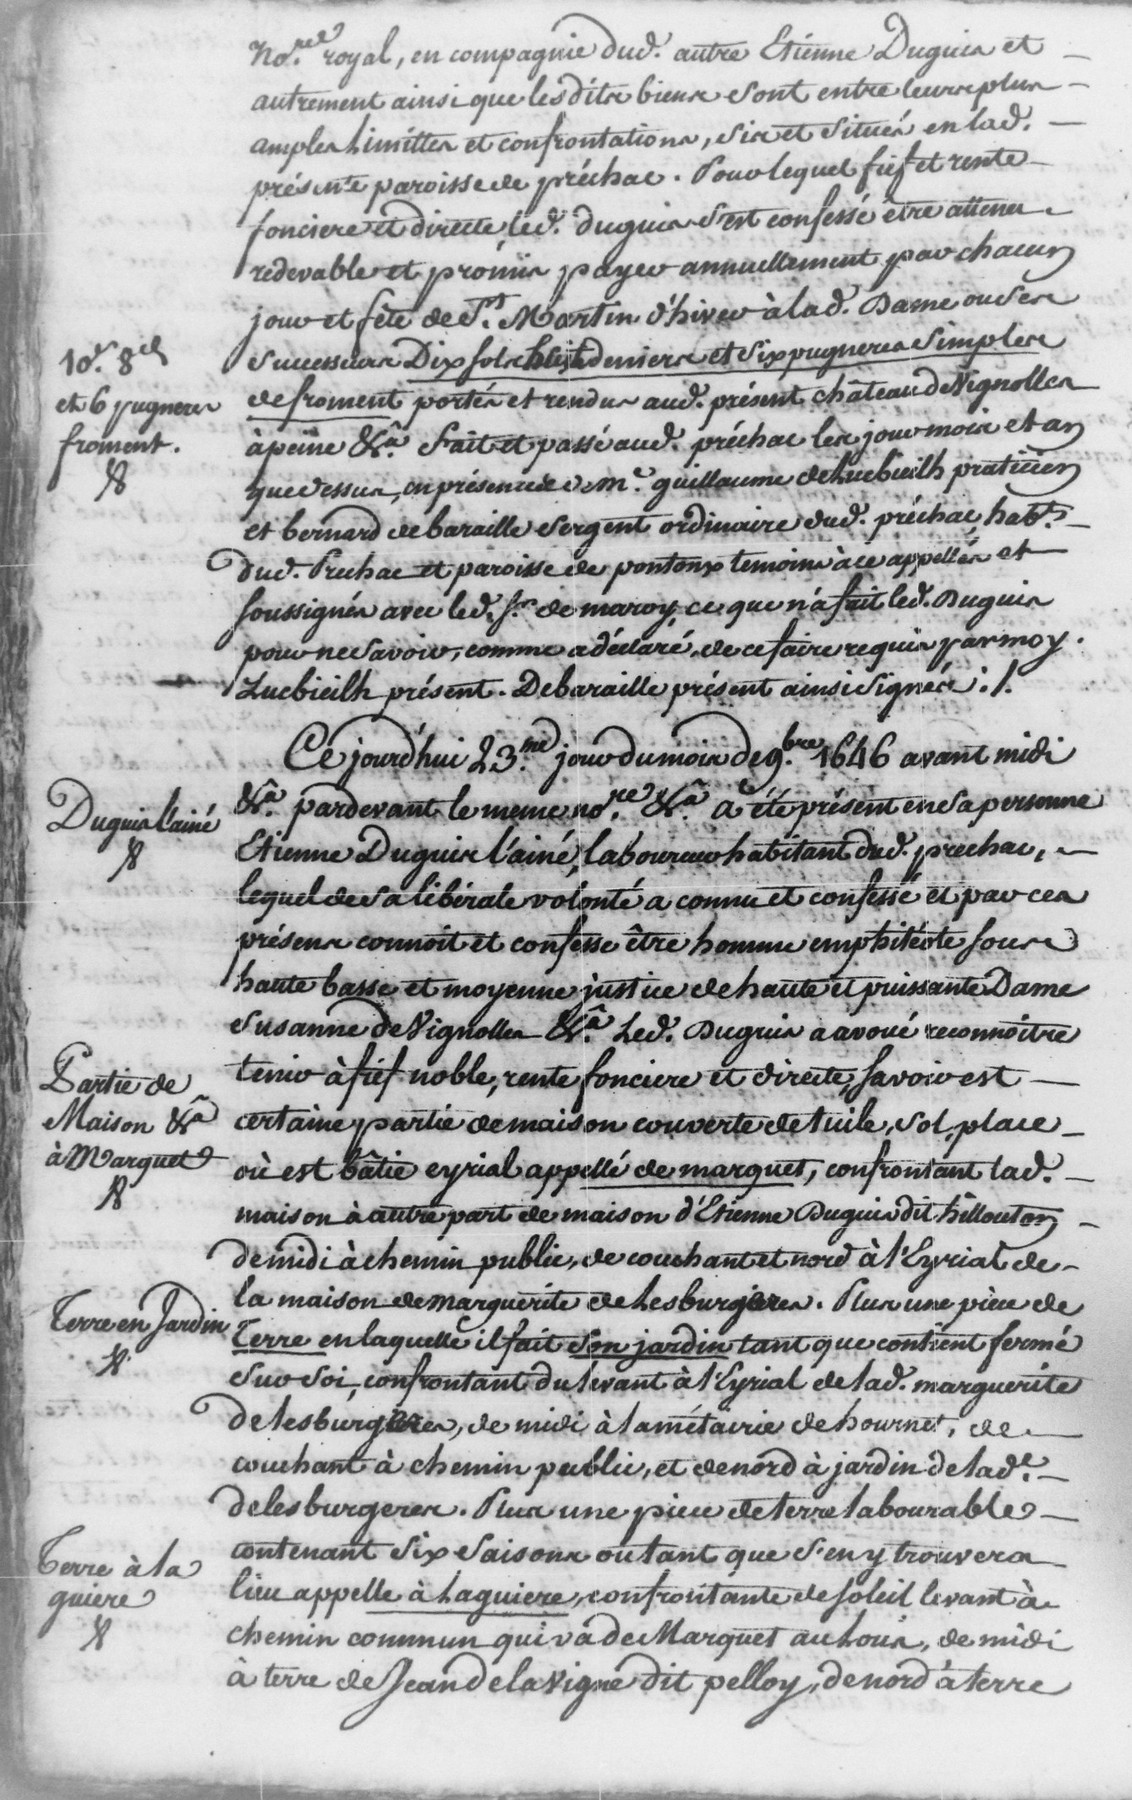 No.re royal, en compagnie dud. autre Etienne Duguis et
autrement ainsi que lesdits biens sont entre leurs plus
amples Limittes et confrontations, sis et situés en lad.
présente paroisse de préchac. Pour lequel fief et rente
fonciere et directe, led. duguis s'est confessé être attenu
redevable et promis payer annuellement par chacun
jour et fête de St. Martin d'hiver à lad. Dame ou ses
successeurs Dix sols huit deniers et six pugneres simples
de froment portés et rendus aud. présent château de Vignolles
10s. 8d
et 6 pugneres
froment.
à peine &a. fait et passé aud. préchac les jour mois et an
que dessus, en présence de Me. guillaume de Lucbieilh praticien
et bernard de baraille sergent ordinaire dud. préchac habts.
dud. Prechac et paroisse de pontonx temoins à ce appellés et
soussignés avec led. sr. de maroy, ce que n'a fait led. Duguis
pour ne savoir, comme a déclaré, de ce faire requis par moy.
Lucbieilh présent. Debaraille présent ainsi signés ./.
Ce jourd'hui 23.me jour du mois de 9.bre 1646 avant midi
Duguis l'ainé
&a. pardevant le meme no.re &a. a été présent en sa personne
Etienne Duguis l'ainé, laboureur habitant dud. prechac,
lequel de sa libérale volonté a connu et confessé et par ces
présens connoit et confesse être homme emphitéote sous
haute basse et moyenne justice de haute et puissante Dame
Susanne de Vignolles &a. Led. Duguis a avoué reconnoître
tenir à fief noble, rente fonciere et directe, savoir est
Partie de
Maison &a
à Marquet
certaine partie de maison couverte de tuile, sol, place
où est bâtie eyrial appellé de marquet, confrontant lad.
maison à autre part de maison d'Etienne Duguis dit hillouton
de midi à chemin public, de couchant et nord à l'Eyrial de
la maison de marguerite de Lesburgeres. Plus une pièce de
Terre en Jardin
Terre en laquelle il fait son jardin tant que contient fermé
sur soi, confrontant du levant à l'Eyrial de lad. marguerite
de lesburgeres, de midi à la métairie de hournet, de
couchant à chemin public, et de nord à jardin de lade.
delesburgeres. Plus une piece de terre labourable
contenant six saisons ou tant que s'en y trouvera
Terre à la
guiere
lieu appelle à Laguiere, confrontante de soleil levant à
chemin commun qui va de Marquet au Louis, de midi
à terre de Jean de la Vigne dit pelloy, de nord à terre